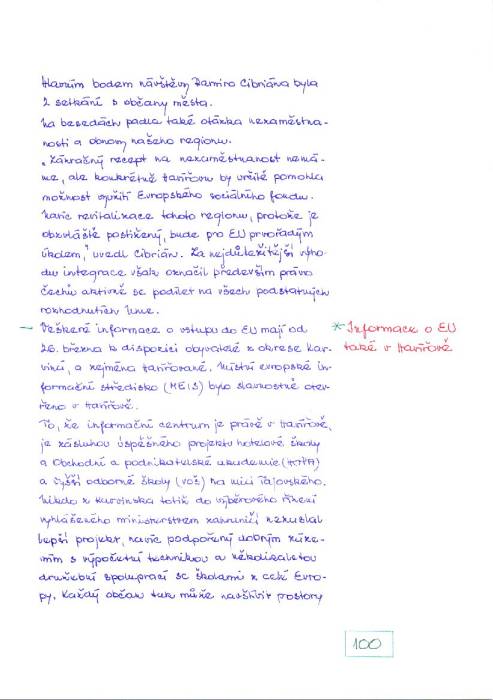 Hlavním bodem návštěvy Ramira Cibriána byla
2 setkání s občany města.
Na besedách padla také otázka nezaměstna-
nosti a obnovy našeho regionu.
„Zázračný recept na nezaměstnanost nemá-
me, ale konkrétně Havířovu by určitě pomohla
možnost využití Evropského sociálního fondu.
Navíc revitalizace tohoto regionu, protože je
obzvláště postižený, bude pro EU prvořadým
úkolem," uvedl Cibrián. Za nejdůležitější výho-
du integrace však označil především právo
Čechů aktivně se podílet na všech podstatných
rozhodnutích Unie.
– Veškeré informace o vstupu do EU mají od
* Informace o EU
také v Havířově
26. března k dispozici obyvatelé z okrese Kar-
viná, a zejména Havířované. Místní evropské in-
formační středisko (MEIS) bylo slavnostně otev-
řeno v Havířově.
To, že informační centrum je právě v Havířově,
je zásluhou úspěšného projektu hotelové školy
a Obchodní a podnikatelské akademie (HOPA)
a Vyšší odborné školy (VOŠ) na ulici Tajovského.
Nikdo z Karvinska totiž do výběrového řízení
vyhlášeného ministerstvem zahraničí nezaslal
lepší projekt, navíc podpořený dobrým záze-
mím s výpočetní technikou a několikaletou
družební spoluprací se školami z celé Evro-
py. Každý občan tak může navštívit prostory
100